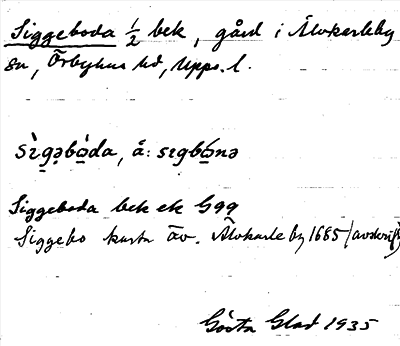 Siggeboda 1/2 bek, gård i Älvkarleby
sn, Örbyhus hd, Upps. l.
sìgəbòda, ä: sɪgbónə
Siggeboda bek ek G99
Siggebo karta äv. Älvkarleby 1685 (avskrift)
Gösta Glad 1935